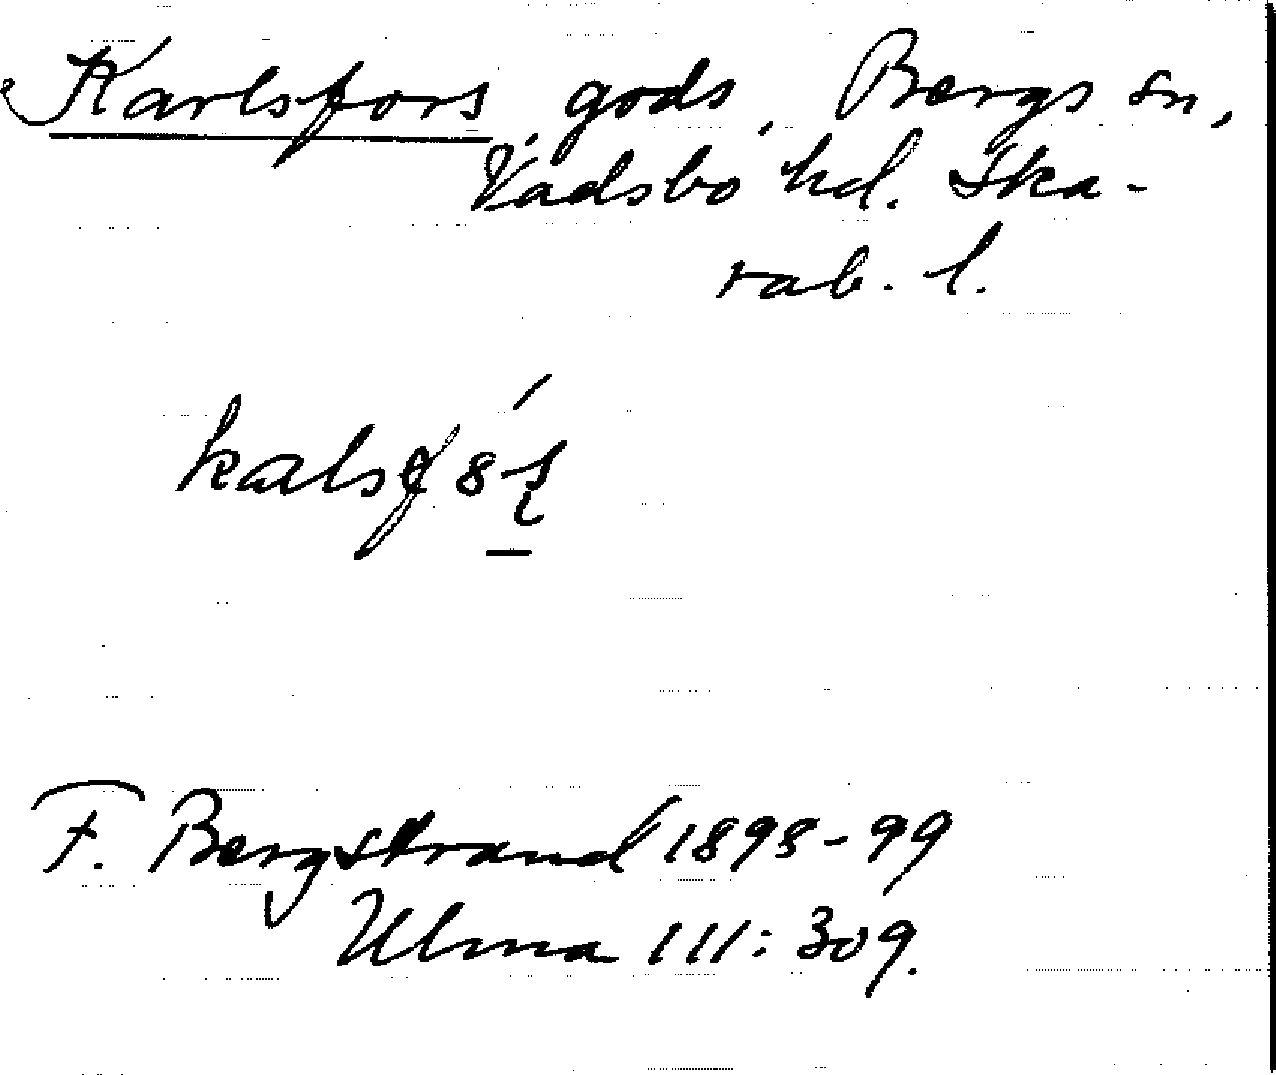 Karlsfors, gods, Bergs sn,
Vadsbo hd. Ska-
rab. l.
F. Bergstrand 1898-99
Ulma 111: 309.